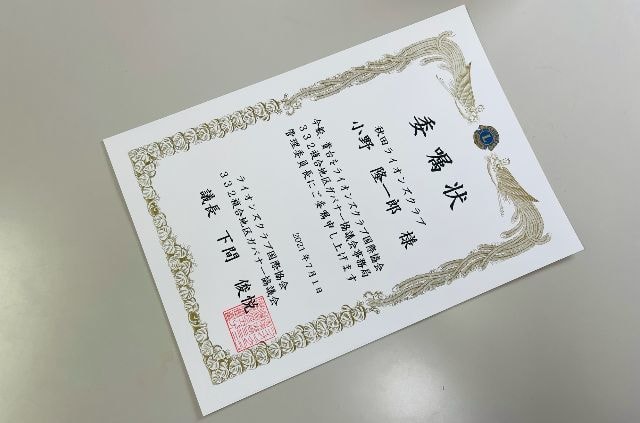 委嘱状
秋田ライオンズクラブ
小野 隆一郎 様
今般、貴台をライオンズクラブ国際協会
332複合地区ガバナー協議会事務局
管理委員長にご委嘱申し上げます
2021年7月1日
ライオンズクラブ国際協会
332複合地区ガバナー協議会
議長 下間 俊悦